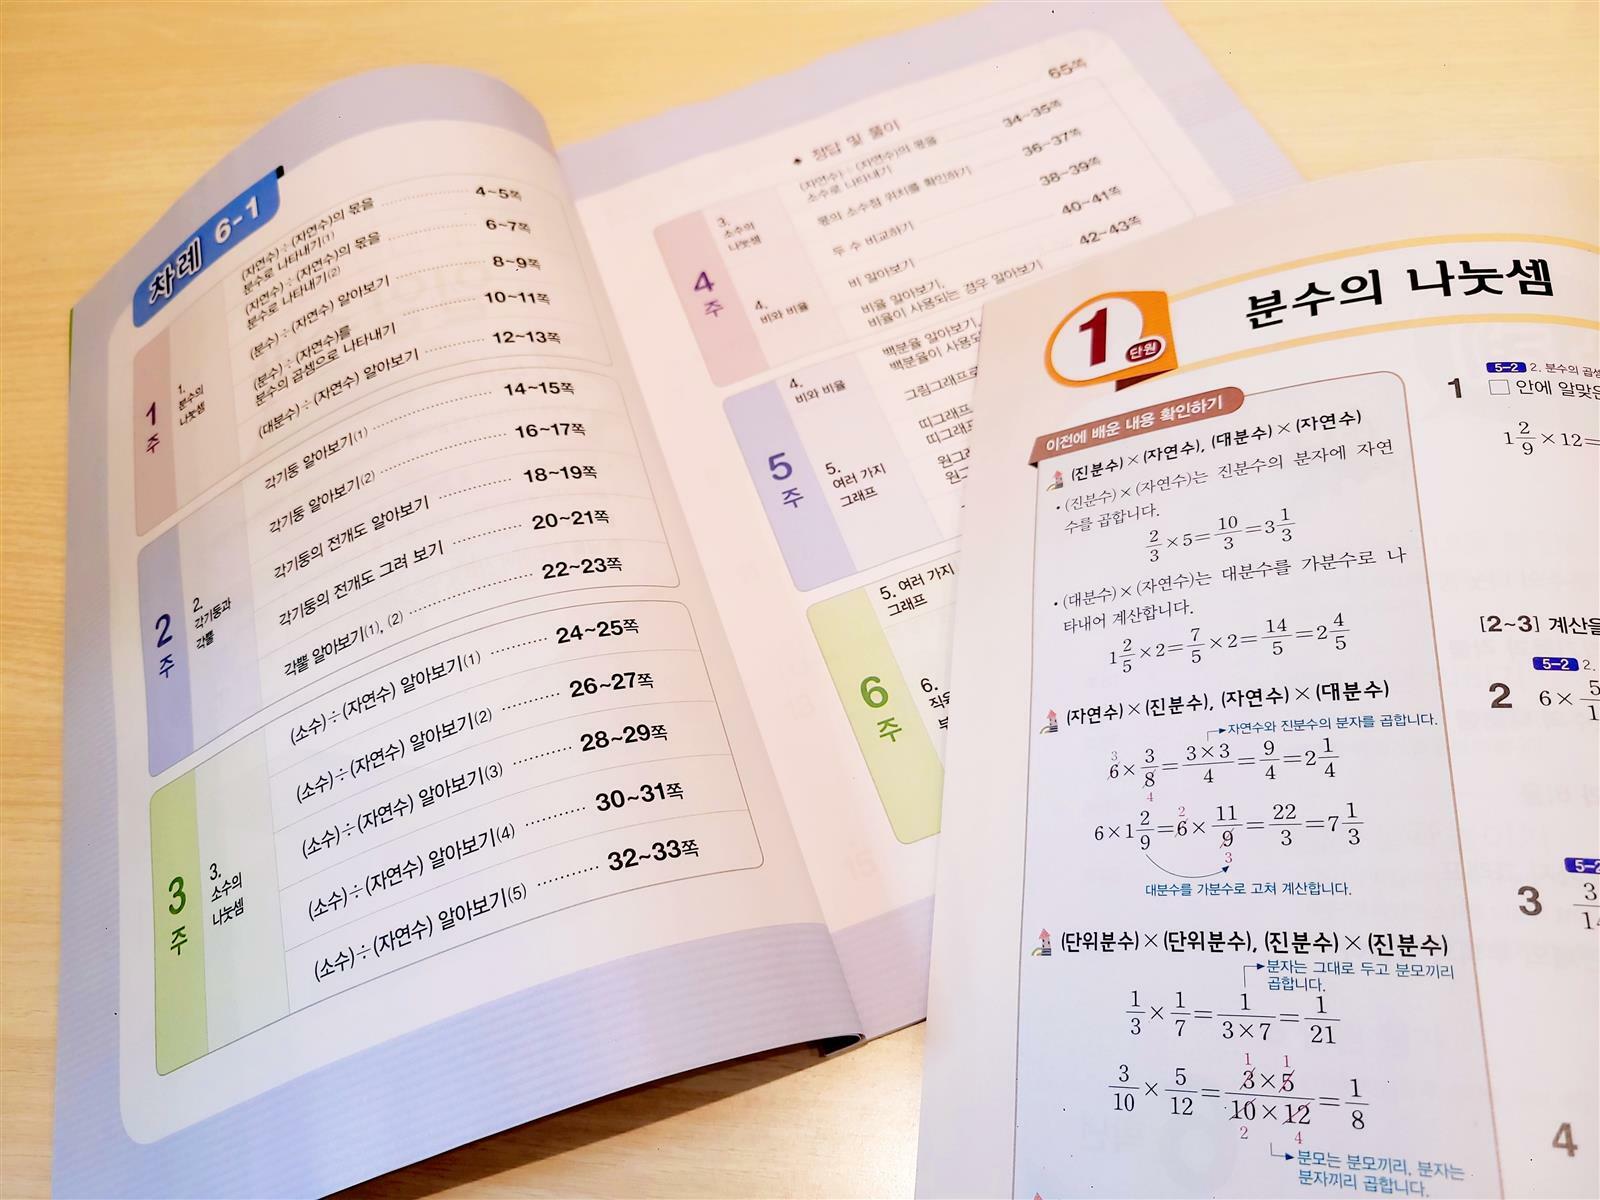 차례 6-1
1주
1. 분수의 나눗셈
(자연수)÷(자연수)의 몫을
분수로 나타내기(1) ············ 4~5쪽
(자연수)÷(자연수)의 몫을
분수로 나타내기(2) ············ 6~7쪽
(분수)÷(자연수) 알아보기 ············ 8~9쪽
(분수)÷(자연수)를
분수의 곱셈으로 나타내기 ············ 10~11쪽
(대분수)÷(자연수) 알아보기 ············ 12~13쪽
2주
2. 각기둥과 각뿔
각기둥 알아보기(1) ············ 14~15쪽
각기둥 알아보기(2) ············ 16~17쪽
각기둥의 전개도 알아보기 ············ 18~19쪽
각기둥의 전개도 그려 보기 ············ 20~21쪽
각뿔 알아보기(1), (2) ············ 22~23쪽
3주
3. 소수의 나눗셈
(소수)÷(자연수) 알아보기(1) ············ 24~25쪽
(소수)÷(자연수) 알아보기(2) ············ 26~27쪽
(소수)÷(자연수) 알아보기(3) ············ 28~29쪽
(소수)÷(자연수) 알아보기(4) ············ 30~31쪽
(소수)÷(자연수) 알아보기(5) ············ 32~33쪽
◆ 정답 및 풀이 65쪽
4주
3. 소수의 나눗셈
(자연수)÷(자연수)의 몫을
소수로 나타내기 34~35쪽
몫의 소수점 위치를 확인하기 36~37쪽
4. 비와 비율
두 수 비교하기 38~39쪽
비 알아보기 40~41쪽
비율 알아보기,
비율이 사용되는 경우 알아보기 42~43쪽
5주
4. 비와 비율
백분율 알아보기,
백분율이 사용되
5. 여러 가지 그래프
그림그래프로
띠그래프
띠그래프
원그
원그
6주
5. 여러 가지 그래프
6.
직육
부
1단원
분수의 나눗셈
이전에 배운 내용 확인하기
(진분수)×(자연수), (대분수)×(자연수)
• (진분수)×(자연수)는 진분수의 분자에 자연
수를 곱합니다.
2/3×5=10/3=3 1/3
• (대분수)×(자연수)는 대분수를 가분수로 나
타내어 계산합니다.
1 2/5×2=7/5×2=14/5=2 4/5
(자연수)×(진분수), (자연수)×(대분수)
자연수와 진분수의 분자를 곱합니다.
3
6×3/8=3×3/4=9/4=2 1/4
4
2
6×1 2/9=6×11/9=22/3=7 1/3
3
대분수를 가분수로 고쳐 계산합니다.
(단위분수)×(단위분수), (진분수)×(진분수)
분자는 그대로 두고 분모끼리
곱합니다.
1/3×1/7=1/3×7=1/21
1 1
3/10×5/12=3×5/10×12=1/8
2 4
분모는 분모끼리, 분자는
분자끼리 곱합니다.
5-2 2. 분수의 곱셈
1 □ 안에 알맞은
1 2/9×12=
[2~3] 계산을
5-2 2.
2 6×
5-2
3
4